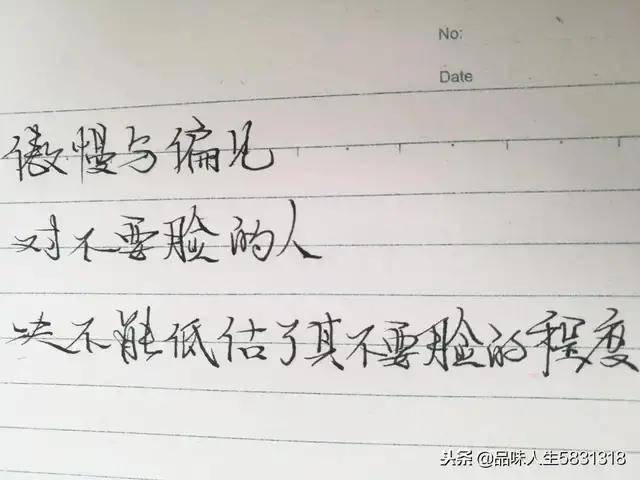 No:
Date
傲慢与偏见
对不要脸的人
决不能低估了其不要脸的程度
头条 @品味人生5831318